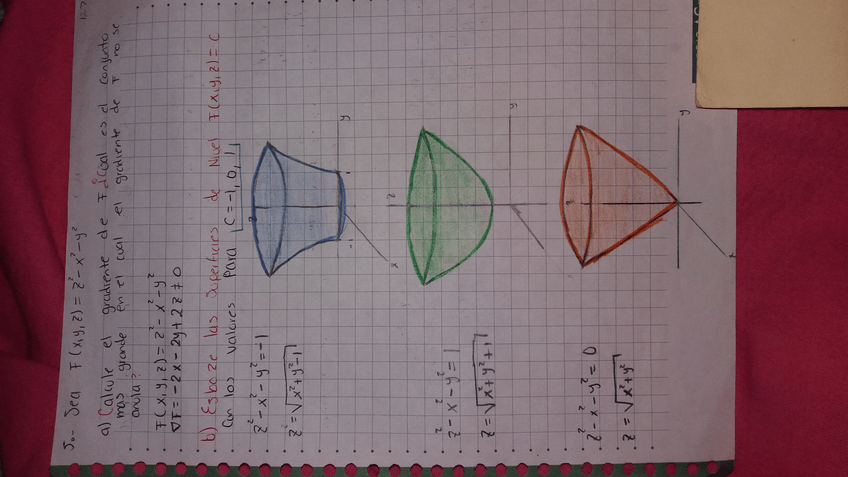 5.- Sea F(x,y,z) = z²-x²-y²
a) Calcule el gradiente de F ¿Cual es el conjunto
mas grande en el cual el gradiente de F no se
anula?
F(x,y,z) = z²-x²-y²
∇F = -2x-2y+2z≠0
b) Esboze las superficies de Nivel F(x,y,z) = C
con los valores para C=-1,0,1,
z²-x²-y²=-1
z=√x²+y²-1
z
y
x
-1
1
z²-x²-y²=1
z=√x²+y²+1
z
y
z²-x²-y²=0
z=√x²+y²
y
x